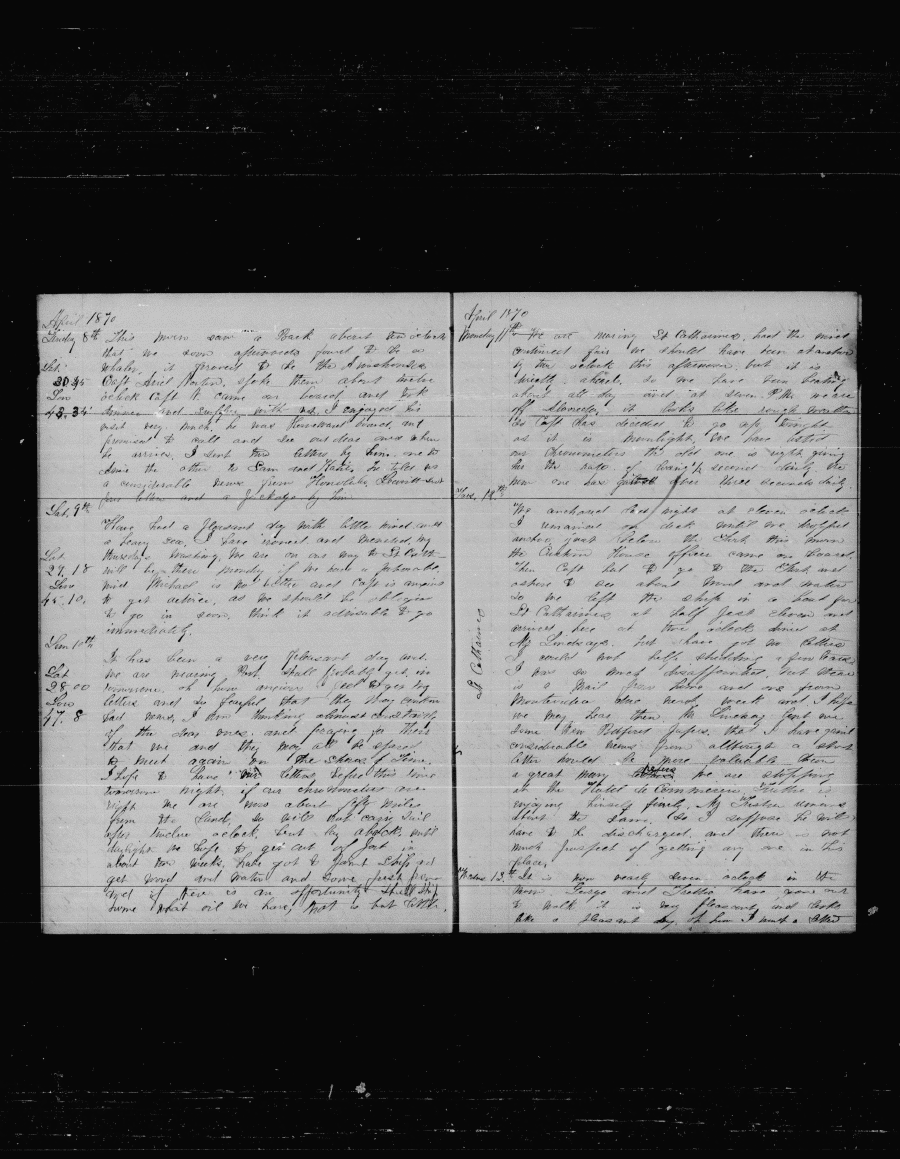 April 1870
Friday 8th This morn saw a Bark about ten oclock
that we soon afterwards found to be a
Lat whaler, it proved to be the
30.35 Capt Ariel Norton, spoke them about twelve
Lon oclock Capt N came on board and took
43.35 dinner and supper with us. I enjoyed his
visit very much, he was homeward bound, and
promised to call and see our dear ones when
he arrives. I sent two letters by him one to
the other to Sam and He told us
a considerable news from Honolulu,
four letters and a package by him.
Sat. 9th
Have had a pleasant day with little wind and
a heavy sea, I have ironed and mended, my
Lat thursdays washing. We are on our way to St Cath
27.18 will be there monday if we have a favorable
Lon wind Michael is no better and Capt is anxious
45.10 to get advice, as we should be obliged
to go in soon, think it advisable to go
immediately.
Sun 10th
It has been a very pleasant day and
Lat we are nearing Port. Shall probably get in
28.00 tomorrow. oh how anxious I feel to get my
Lon letters and so fearful that they may contain
47.8 bad news, I am thinking almost constantly
of the dear ones, and praying for them
that we and they may all be spared
to meet again on the shores of Time.
I hope to have our letters before this time
tomorrow night, if our chronometers are
right we are now about fifty miles
from the land, so will not carry sail
after twelve oclock, but lay aback until
daylight. We hope to get out of port in
about two weeks, have got to paint ship and
get wood and water and some fresh
and if there is an opportunity shall ship
home what oil we have, that is but little.
April 1870
Monday 11th We are nearing St Catharines, had the wind
continued fair we should have been at anchor
by ten oclock this afternoon but it is
directly ahead, so we have been beating
about all day and at seven P.M. we are
off it looks like rough weather
but Capt has decided to go up tonight
as it is moonlight. We have tested
our Chronometers the old one is right giving
her the rate of losing 1/2 second daily the
new one has over three seconds daily.
Tues. 12th
We anchored last night at eleven oclock
I remained on deck until we dropped
anchor just below the Fort, this morn
the Custom House officer came on board.
Then Capt had to go to the Fort and
ashore to see about wood and water
so we left the ship in a boat for
St Catharines at half past eleven and
St Catharines
arrived here at two oclock dined at
Mr Lindsays. but have got no letters
I could not help shedding a few tears
I was so much disappointed. Next
is a mail from home and one from
Montevideo due next week and I hope
we may hear then. Mr Lindsay lent me
some New Bedford papers, that I have gained
considerable news from although a short
letter would be more valuable than
a great many papers we are stopping
at the Hotel de Commercio is
enjoying himself finely. Mr Fisher remains
about the same. so I suppose he will
have to be discharged, and there is not
much prospect of getting any one in his
place.
Wednes 13th It is now nearly seven oclock in the
morn George and have gone out
to walk it is very pleasant, and looks
like a pleasant day oh how I want a letter